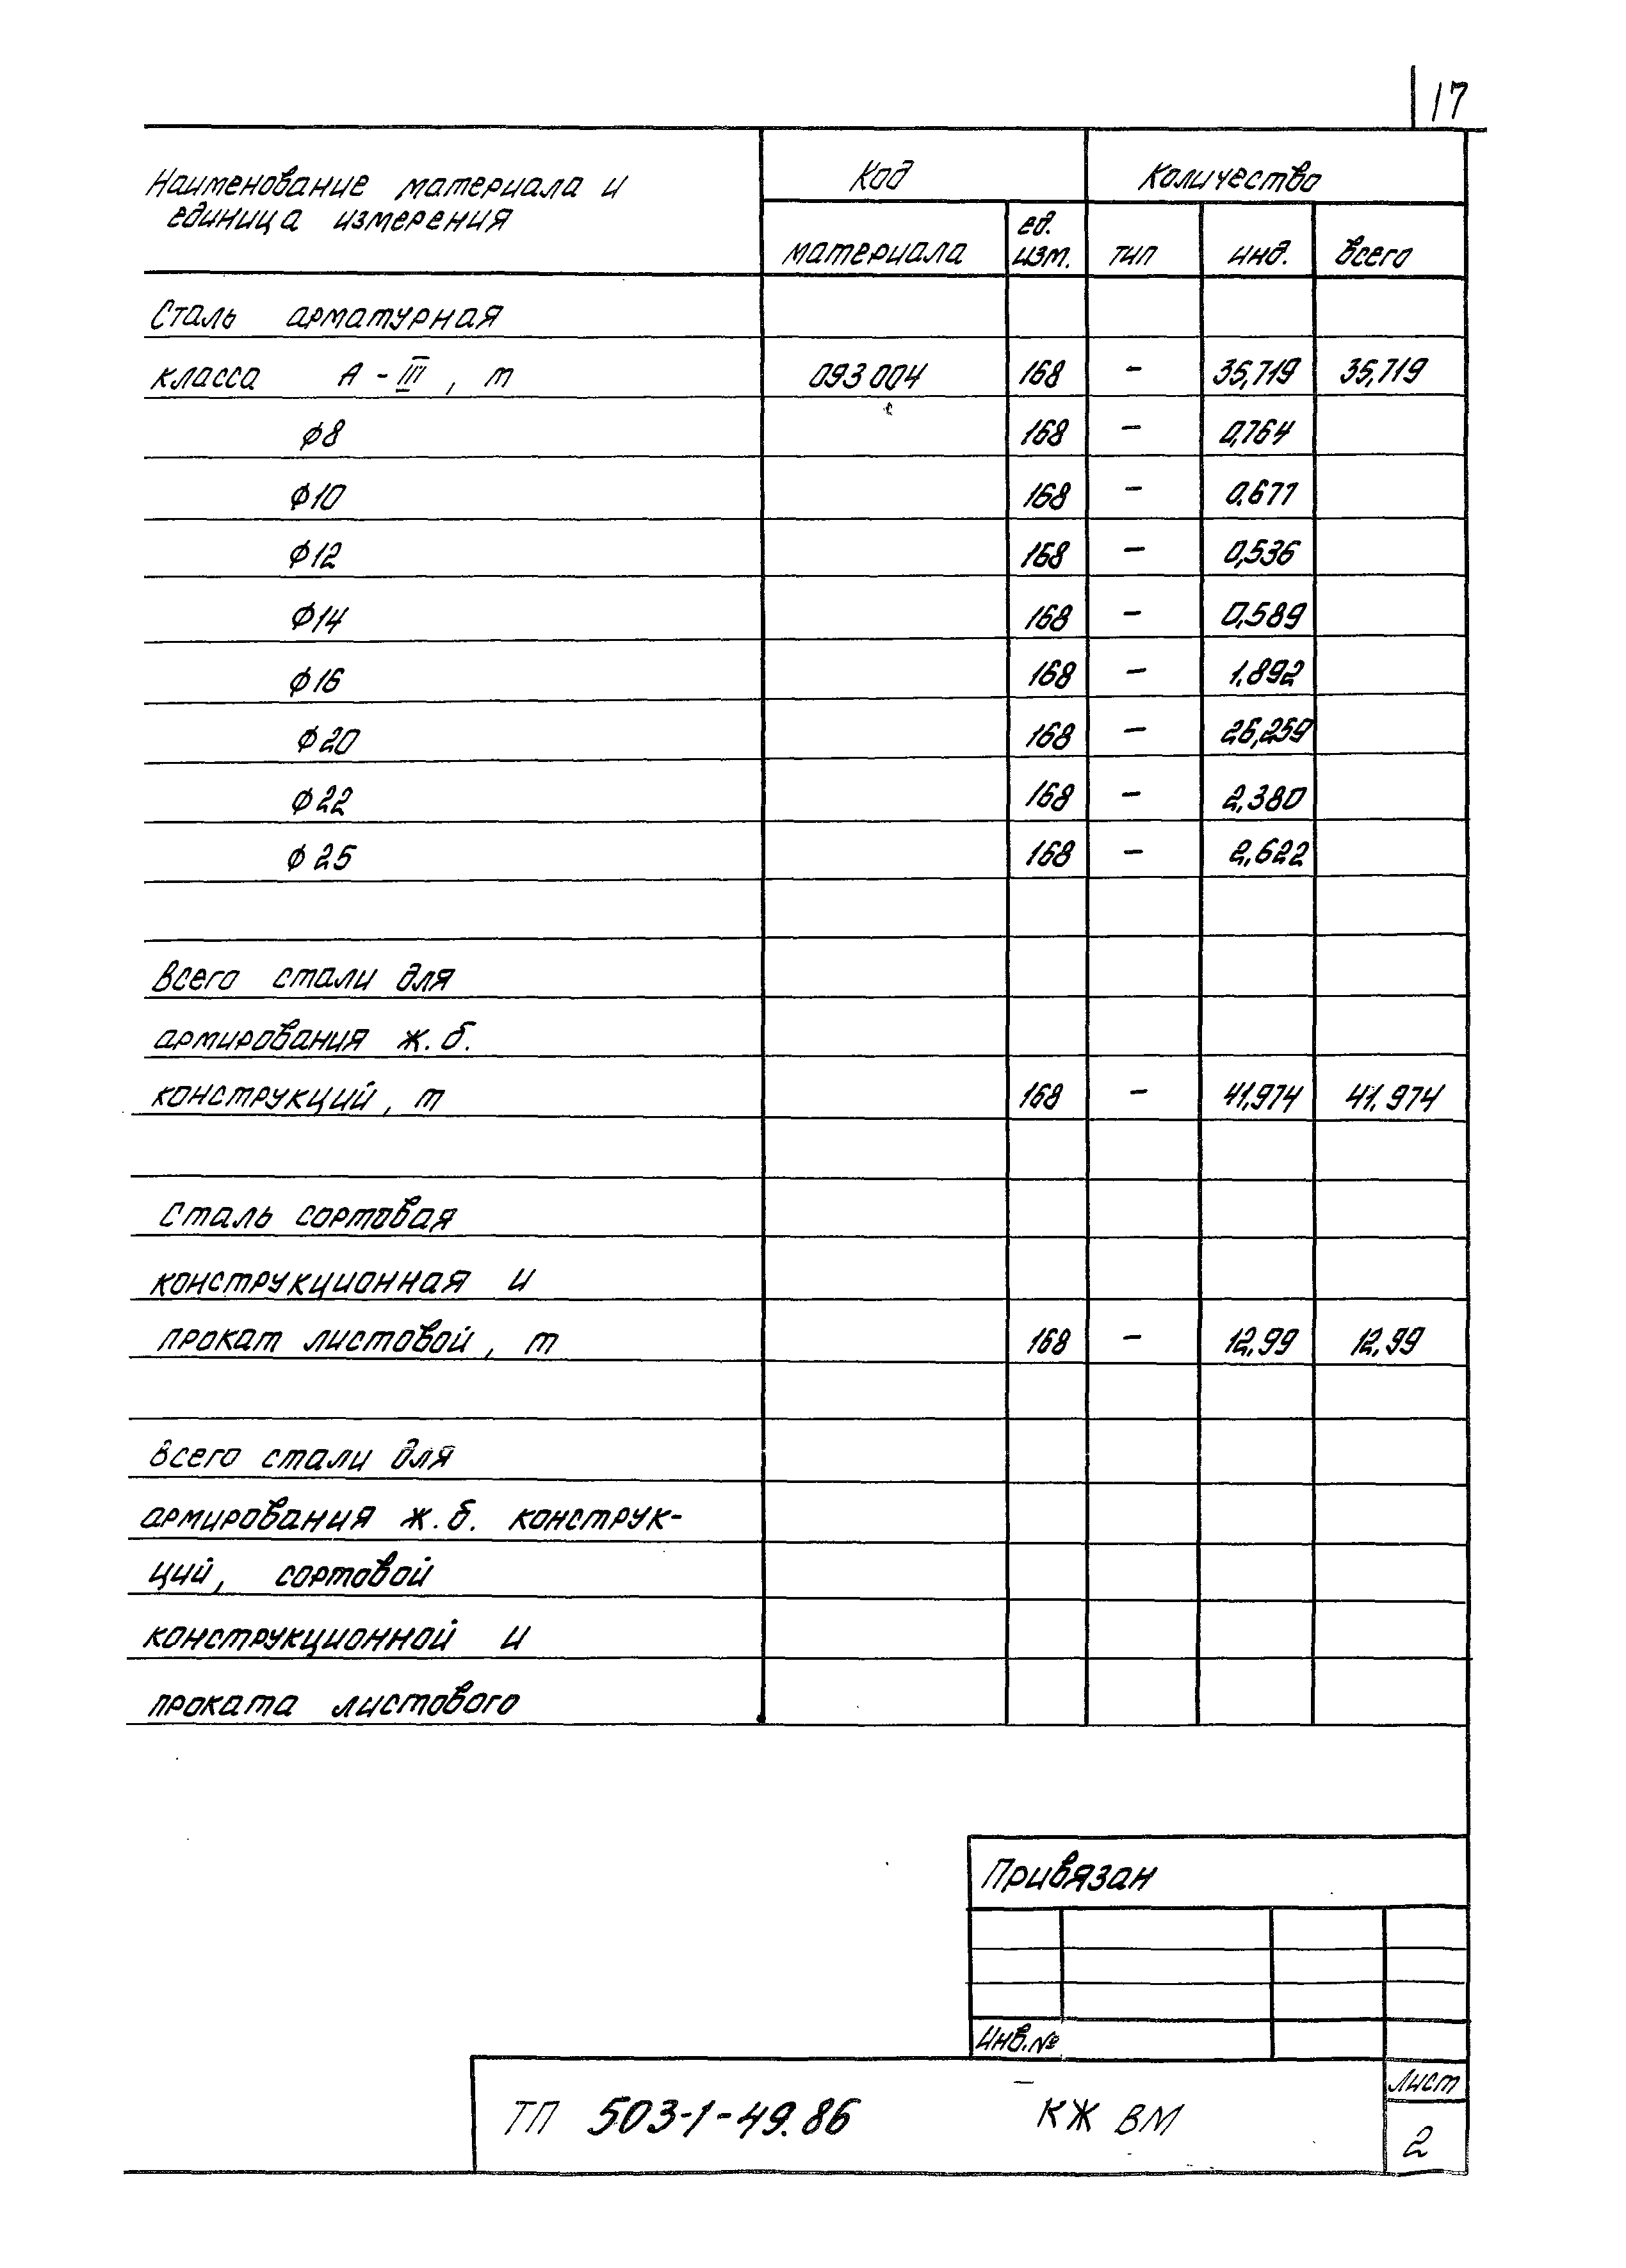 17
Наименование материала и
единица измерения
Код
Количество
материала
ед.
изм.
тип
инд.
всего
Сталь арматурная
класса А-III, т 093004 168 – 35,719 35,719
ф8 168 – 0,764
ф10 168 – 0.677
ф12 168 – 0,536
ф14 168 – 0,589
ф16 168 – 1.892
ф20 168 – 26,259
ф22 168 – 2,380
ф25 168 – 2,622
Всего стали для
армирования ж.б.
конструкций, т 168 – 41,974 41,974
Сталь сортовая
конструкционная и
прокат листовой, т 168 – 12,99 12,99
Всего стали для
армирования ж.б. конструк-
ций, сортовой
конструкционной и
проката листового
Привязан
Инв.№
ТП 503-1-49.86 КЖ ВМ
лист
2